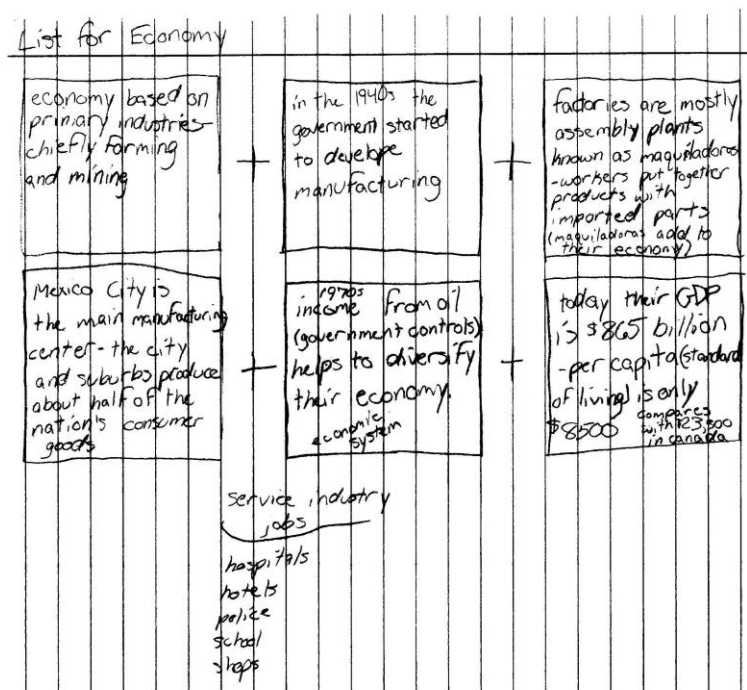 List for Economy
economy based on
primary industries-
chiefly farming
and mining
in the 1940s the
government started
to develope
manufacturing
factories are mostly
assembly plants
known as maquiladoras
-workers put together
products with
imported parts
(maquiladoras add to
their economy)
Mexico City is
the main manufacturing
center - the city
and suburbs produce
about half of the
nation's consumer
goods
1970s
income from oil
(government controls)
helps to diversify
their economy.
economic
system
today their GDP
is $865 billion
-per capita (standard
of living) is only
$8500 compares
with $23,300
in canada
service industry
jobs
hospitals
hotels
police
school
shops